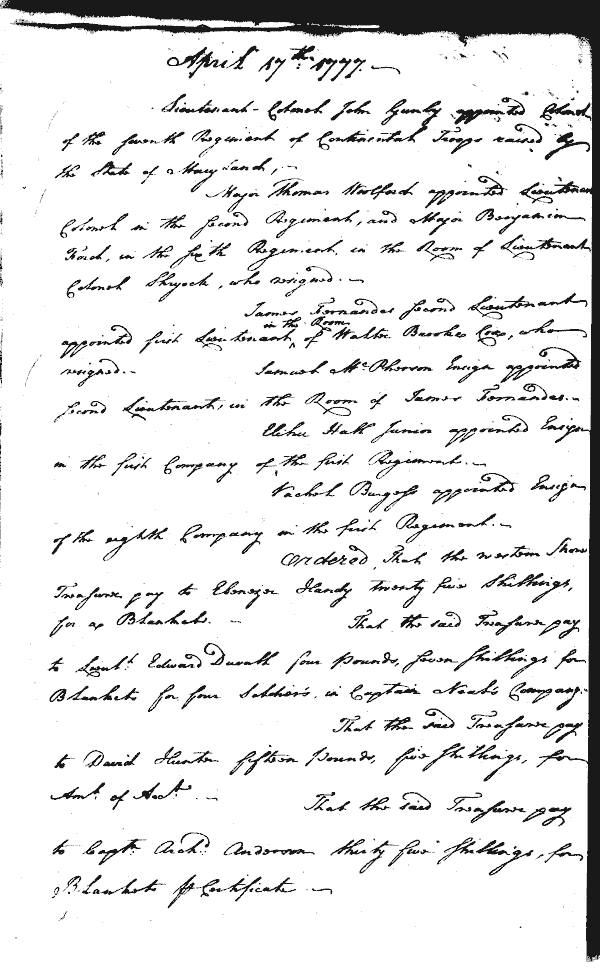 April 17th 1777.—
Lieutenant-Colonel John Gunby appointed Colonel
of the seventh Regiment of Continental Troops raised by
the State of Maryland,—
Major Thomas Woolford appointed Lieutenant
Colonel in the second Regiment, and Major Benjamin
Ford, in the sixth Regiment, in the Room of Lieutenant
Colonel Shryock, who resigned.—
James Fernandes second Lieutenant
appointed first Lieutenant, in the Room of Walter Brooke Cox, who
resigned.—
Samuel McPherson Ensign appointed
second Lieutenant, in the Room of James Fernandes.—
Elihu Hall Junior appointed Ensign
in the first Company of the first Regiment.—
Vachel Burgess appointed Ensign
of the eighth Company in the first Regiment.—
Ordered, That the western Shore
Treasurer pay to Ebenezer Handy twenty five Shillings,
for a Blanket.—
That the said Treasurer pay
to Lieut. Edward Duvall four Pounds, seven shillings for
Blankets for four Soldiers, in Captain Neal's Company.
That the said Treasurer pay
to David Hunter fifteen Pounds, five shillings, for
Amt. of Acct.—
That the said Treasurer pay
to Capt. Archd. Anderson thirty five shillings, for
Blankets ℔ Certificate—